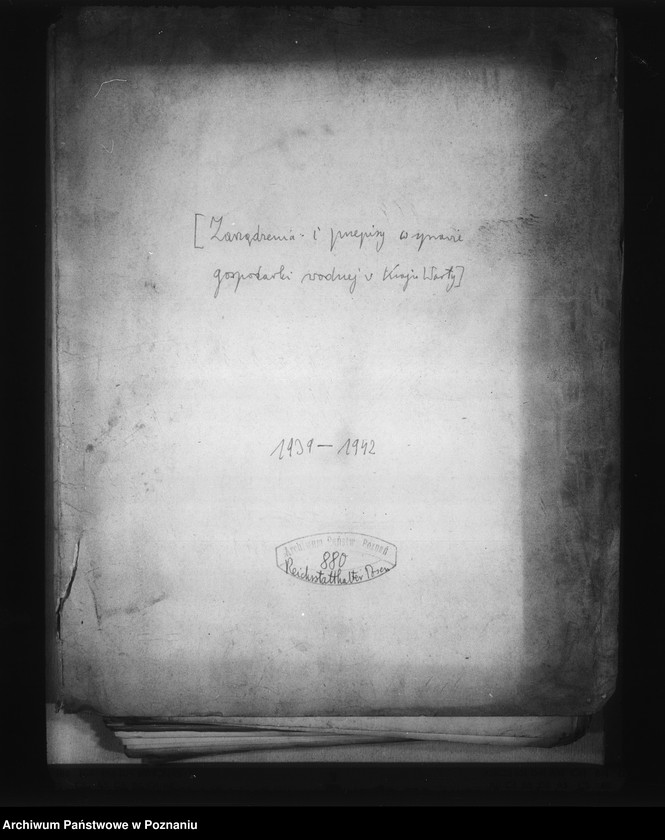 [Zarządzenia i przepisy w sprawie
gospodarki wodnej w Kraju Warty]
1939 — 1942
Archiwum Państw. Poznań
880
Reichsstatthalter Posen
Archiwum Państwowe w Poznaniu